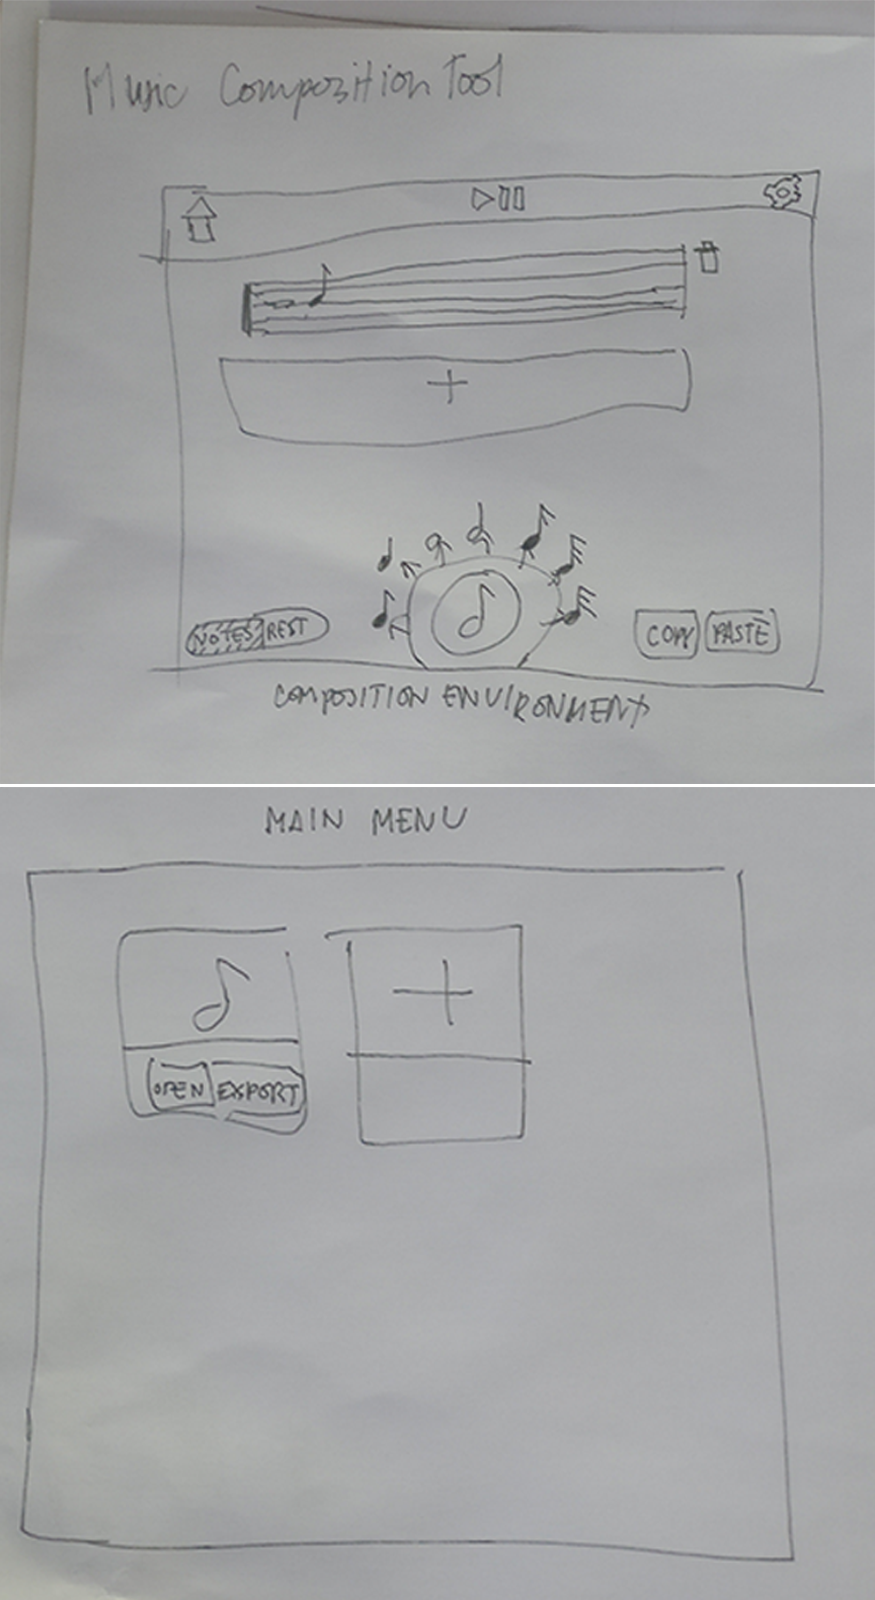 Music Composition Tool
NOTES REST
COPY PASTE
COMPOSITION ENVIRONMENT
MAIN MENU
OPEN EXPORT